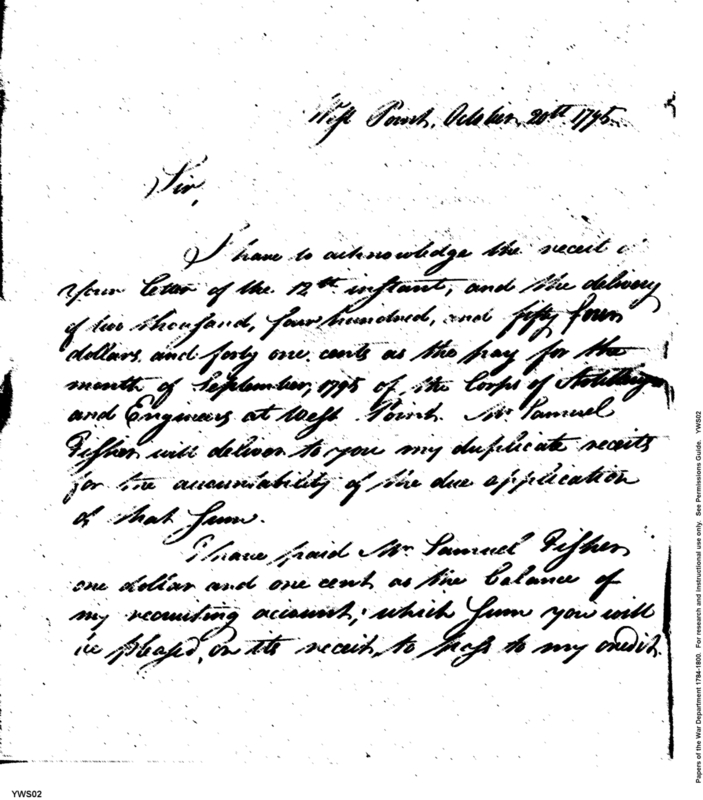 West Point, October 20th 1795.
Sir,
I have to acknowledge the receit of
Your letter of the 12th instant, and the delivery
of two thousand, four hundred, and fifty four
dollars and forty one cents as the pay for the
month of September, 1795 of the Corps of Artillery
and Engineers at West Point. Mr Samuel
Fisher will deliver to you my duplicate receits
for the accountability of the due application
of that sum.
I have paid Mr Samuel Fisher
one dollar and one cent as the balance of
my recruiting account; which sum you will
be pleased, on its receit, to pass to my credit.
Papers of the War Department 1784-1800. For research and instructional use only. See Permissions Guide. YWS02
YWS02